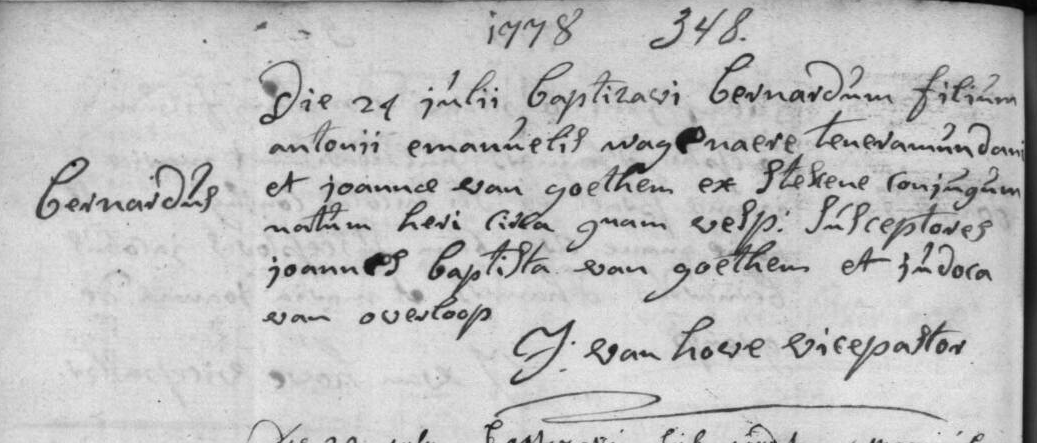 1778 348.
Die 24 julii baptizavi bernardum filium
antonii emanuelis wagenaere teneramundani
et joannae van goethem ex Stekene conjugum
bernardus
natum heri circa quam vesp: Susceptores
joannes baptista van goethem et judoca
van overloop
J. van howe vicepastor